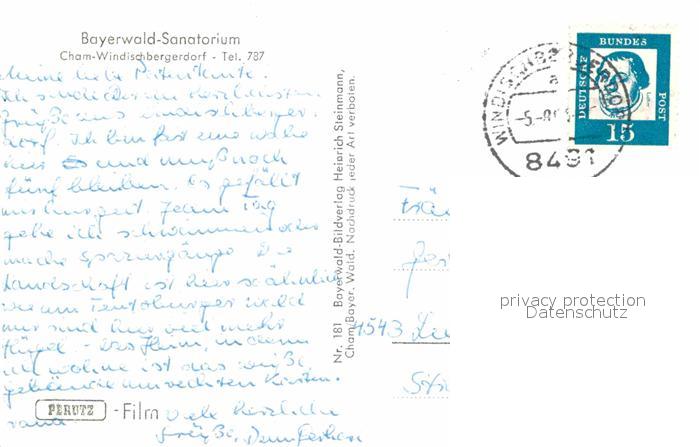 Bayerwald-Sanatorium
Cham-Windischbergerdorf - Tel. 787
Meine liebe Patentante.
Ich sende dir die herzlichsten
Grüße aus Windischberger-
dorf. Ich bin fast eine Woche
hier und muß noch
fünf bleiben. Es gefällt
mir hier gut. Jeden Tag
gehe ich schwimmen oder
mache Spaziergänge. Die
Landschaft ist hier so ähnlich
wie im Teutoburger Wald
nur sind hier viel mehr
Hügel. Das Heim, in dem
ich wohne ist das weiße
Gebäude am rechten Kartenrand
Viele herzliche
Grüße, Dein
PERUTZ -Film
Nr. 181 Bayerwald-Bildverlag Heinrich Steinmann,
Cham/Bayer. Wald. Nachdruck jeder Art verboten.
DEUTSCHE BUNDES POST
15
WINDISCHBERGERDORF
a
8491
4543
privacy protection
Datenschutz